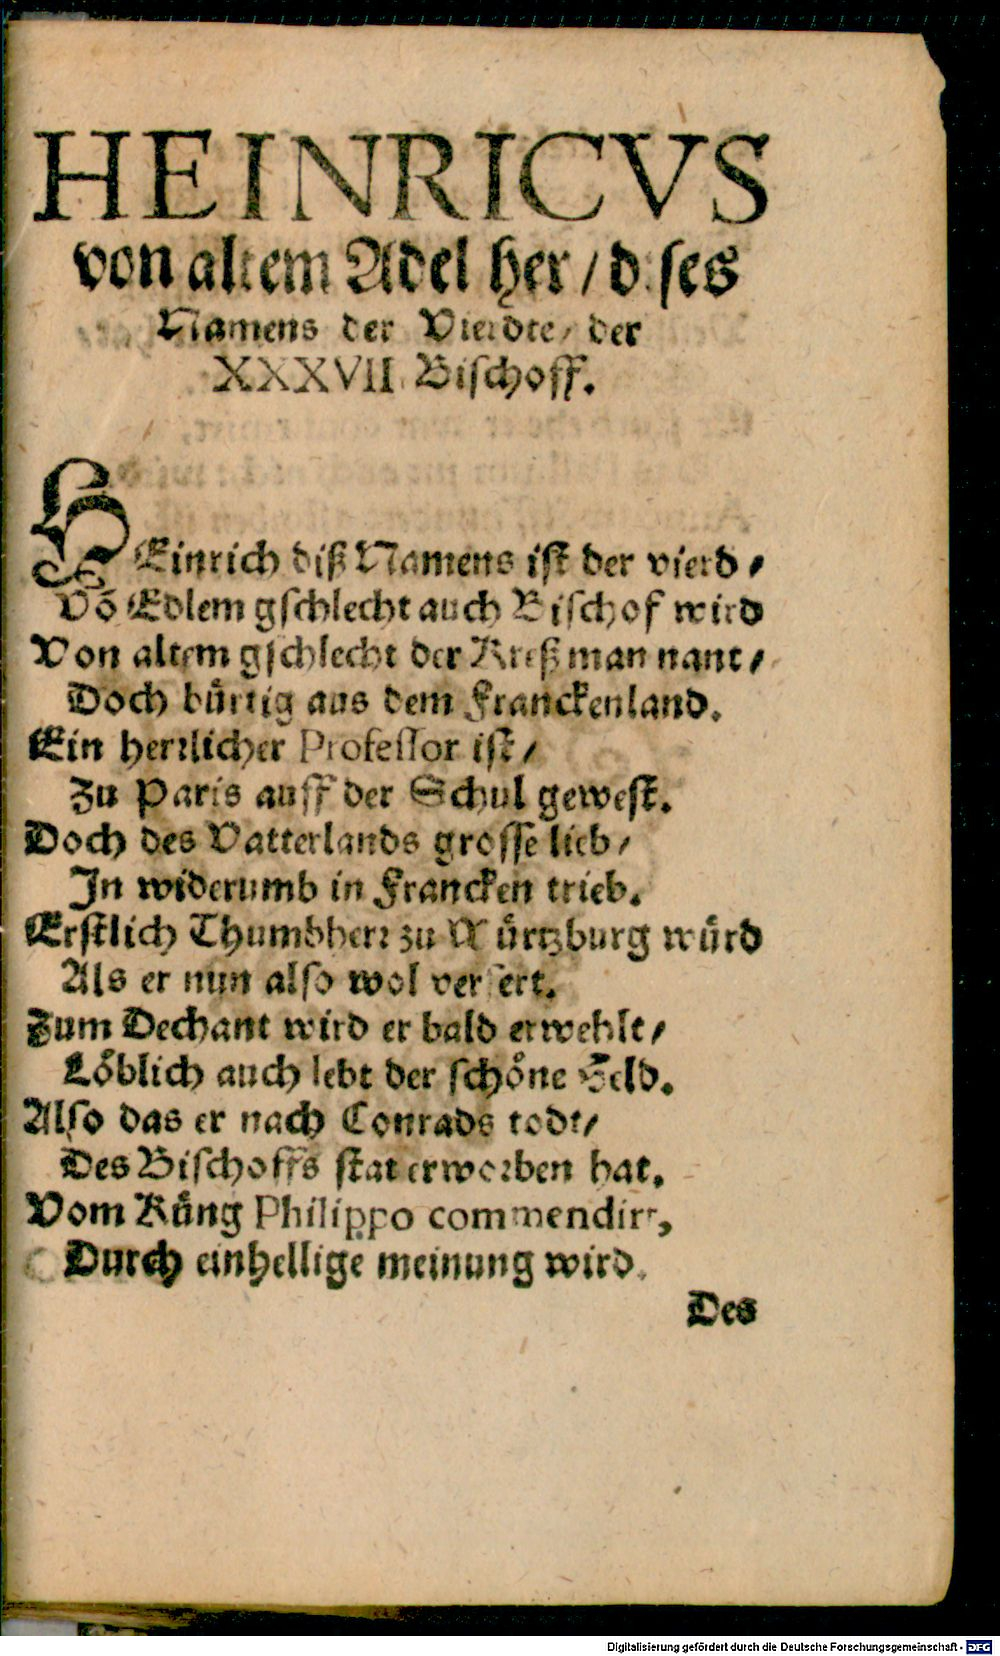 HEINRICVS
von altem Adel her / dises
Namens der Vierdte / der
XXXVII. Bischoff.
HEinrich diß Namens ist der vierd /
Võ Edlem gschlecht auch Bischof wird
Von altem gschlecht der Kreß man nant /
Doch bürtig aus dem Franckenland.
Ein herrlicher Professor ist /
Zu Paris auff der Schul gewest.
Doch des Vatterlands grosse lieb /
In widerumb in Francken trieb.
Erstlich Thumbherr zu Würtzburg würd
Als er nun also wol versert.
Zum Dechant wird er bald erwehlt /
Löblich auch lebt der schöne Held.
Also das er nach Conrads todt /
Des Bischoffs stat erworben hat.
Vom Küng Philippo commendirt,
Durch einhellige meinung wird.
Des
Digitalisierung gefördert durch die Deutsche Forschungsgemeinschaft - DFG